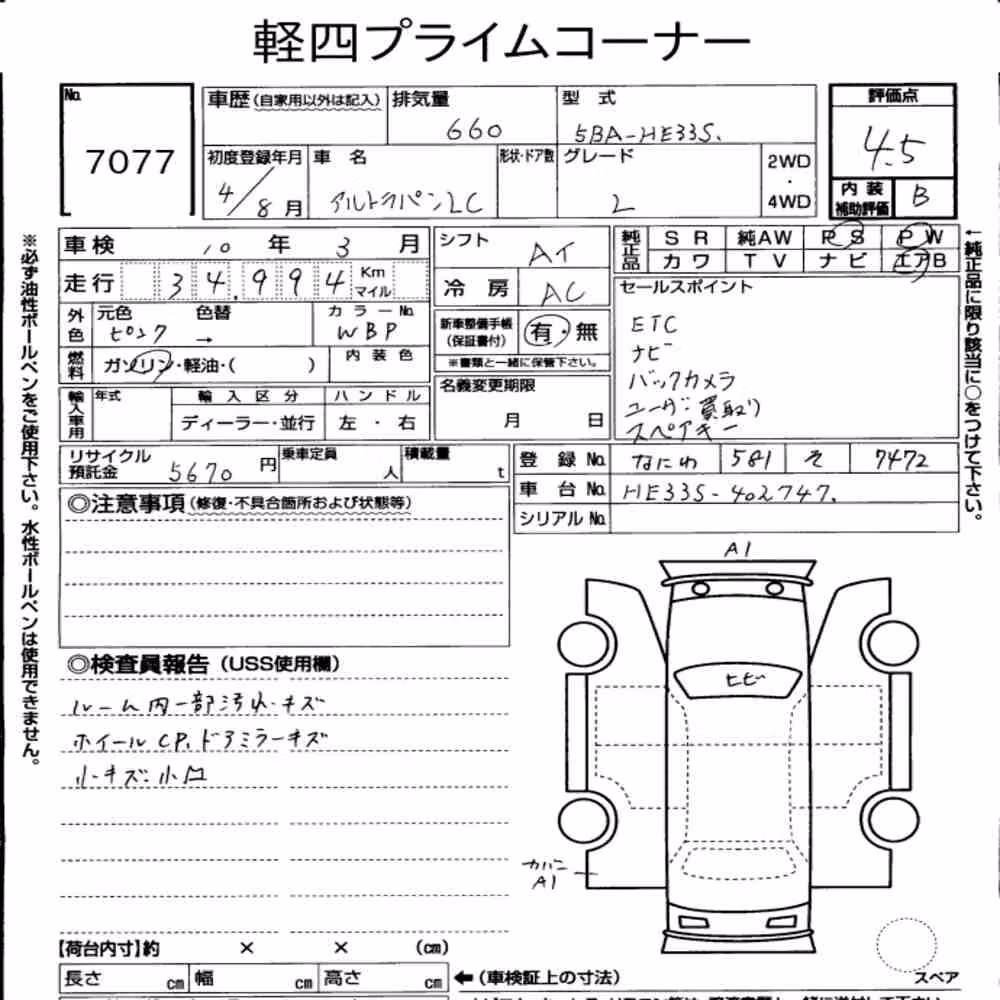 軽四プライムコーナー
No.
7077
車歴(自家用以外は記入)
排気量
660
型式
5BA-HE33S.
評価点
4.5
内装
補助評価
B
初度登録年月
4/8月
車名
アルトラパンLC
形状・ドア数
グレード
L
2WD
・
4WD
※必ず油性ボールペンをご使用下さい。水性ボールペンは使用できません。
車検 10年 3月
走行 34,994 Km
マイル
シフト
AT
冷房
AC
純正品
SR 純AW PS PW
カワ TV ナビ エアB
←純正品に限り該当に○をつけて下さい。
外色
元色 色替
ピンク →
カラーNo.
WBP
燃料
ガソリン・軽油・( )
内装色
新車整備手帳
(保証書付)
有・無
※書類と一緒に保管下さい。
名義変更期限
月 日
セールスポイント
ETC
ナビ
バックカメラ
ユーザー買取り
スペアキー
輸入車用
年式
輸入区分
ディーラー・並行
ハンドル
左・右
リサイクル
預託金
5670円
乗車定員
人
積載量
t
登録No. なにわ 581 そ 7472
車台No. HE33S-402747.
シリアルNo.
◎注意事項(修復・不具合箇所および状態等)
◎検査員報告(USS使用欄)
ルーム内一部汚れ・キズ
ホイールCP.ドアミラーキズ
小キズ・小凹
A1
ヒビ
A1
スペア
【荷台内寸】約 × × (cm)
長さ cm 幅 cm 高さ cm
←(車検証上の寸法)